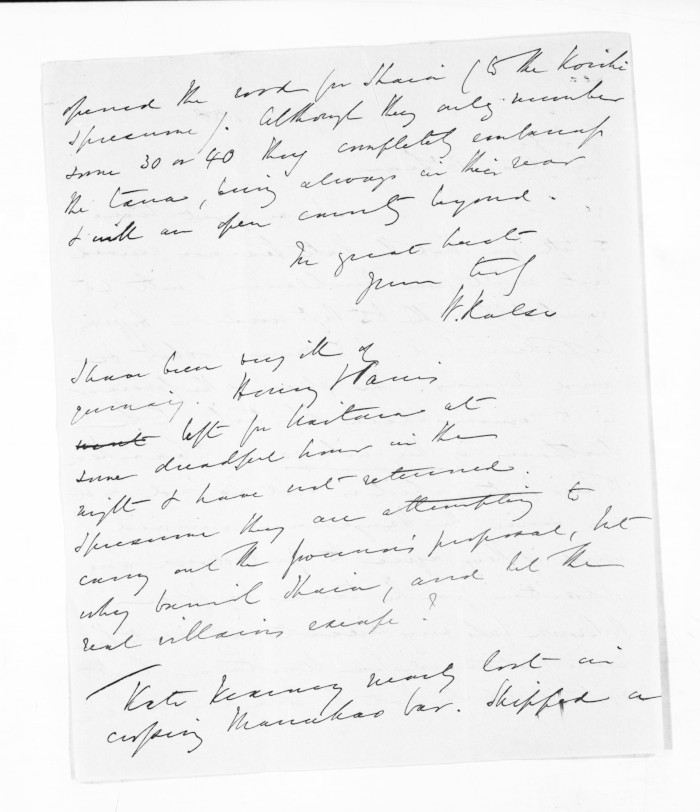 opened the road for Ihaia (to the Karaka
I presume). Although they only number
some 30 or 40 they completely embarrass
the taua, being always in their rear
& with an open country beyond.
In great haste
yours truly
W. Halse
I have been very ill of
Henry & Parris
went left for Waitara at
some dreadful hour in the
night & have not returned.
I presume they are attempting to
carry out the Governor's proposal, but
why banish Ihaia, and let the
real villains escape?
Kate Kearney nearly lost in
crossing Manukao bar. Shipped a